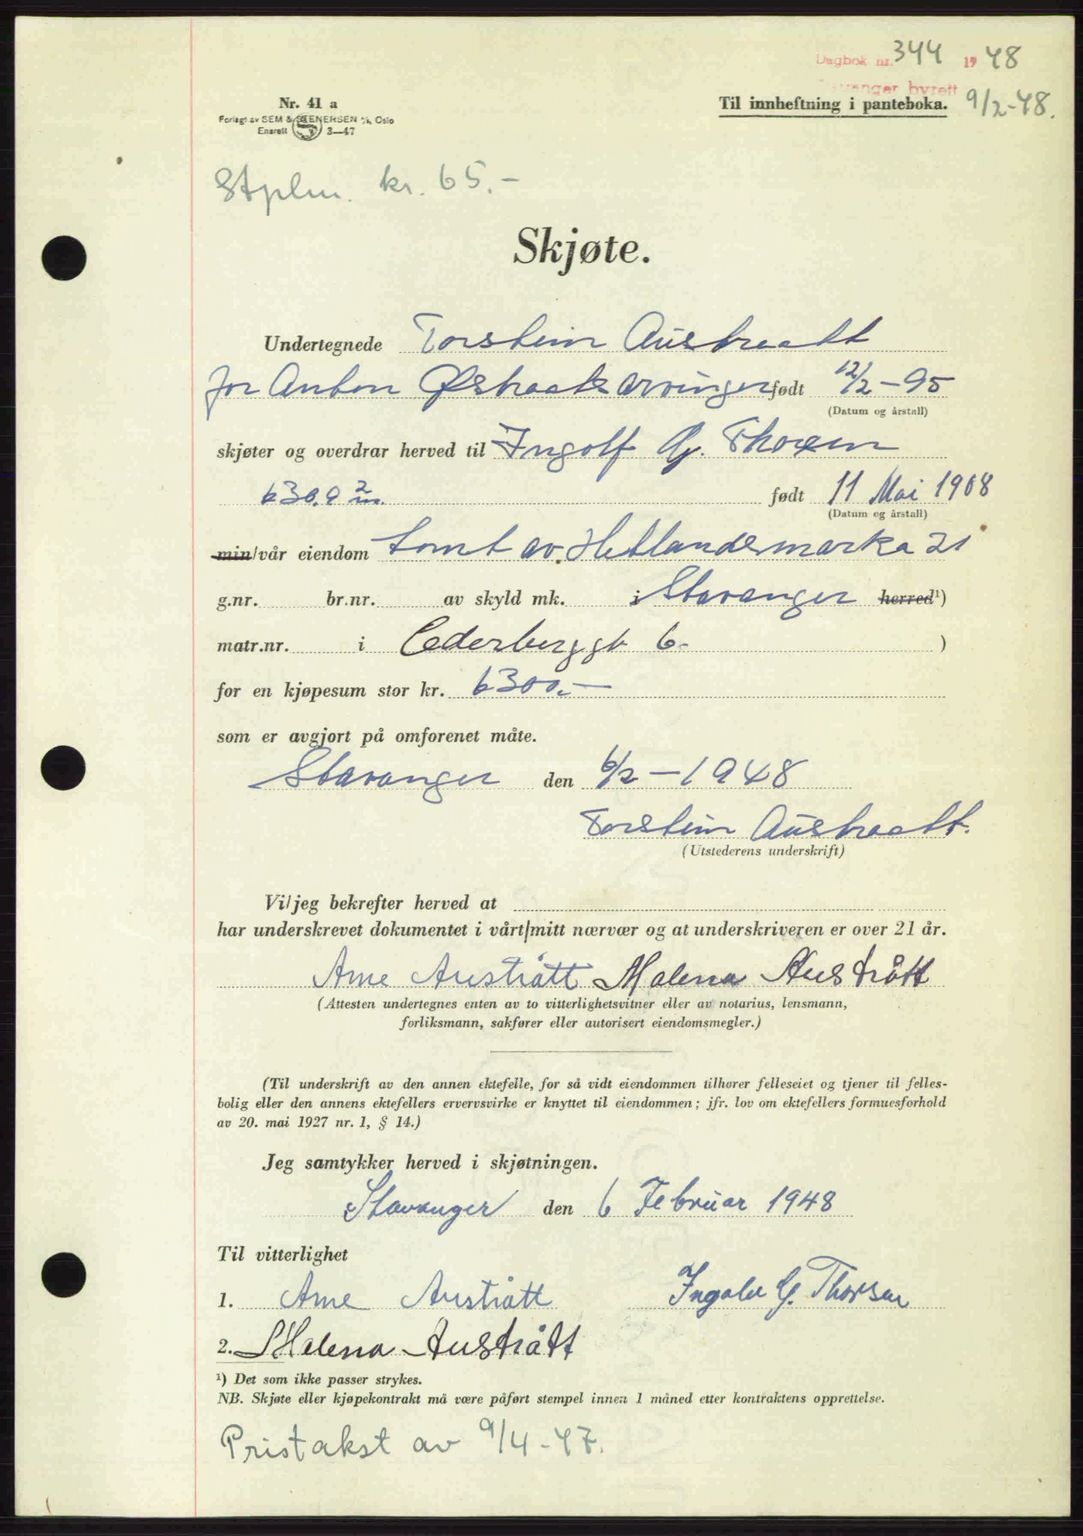 Dagbok nr. 344 1948
Stavanger byrett
Til innheftning i panteboka. 9/2-48.
Nr. 41 a
Forlagt av SEM & STENERSEN A/S, Oslo
Enerett 3-47
Stplm. kr. 65.-
Skjøte.
Undertegnede Torstein Austraatt
for Anton Østraats arvinger født 12/2-95
(Datum og årstall)
skjøter og overdrar herved til Ingolf G. Thorsen
630.9 m2. født 11 Mai 1908
(Datum og årstall)
min/vår eiendom tomt av Hetlandsmarka 21
g.nr. br.nr. av skyld mk. i Stavanger herred¹)
matr.nr. i Cederberggt 6- )
for en kjøpesum stor kr. 6300.-
som er avgjort på omforenet måte.
Stavanger den 6/2-1948
Torstein Austraatt.
(Utstederens underskrift)
Vi/jeg bekrefter herved at
har underskrevet dokumentet i vårt/mitt nærvær og at underskriveren er over 21 år.
Arne Austrått Malena Austrått
(Attesten undertegnes enten av to vitterlighetsvitner eller av notarius, lensmann,
forliksmann, sakfører eller autorisert eiendomsmegler.)
(Til underskrift av den annen ektefelle, for så vidt eiendommen tilhører felleseiet og tjener til felles-
bolig eller den annens ektefellers ervervsvirke er knyttet til eiendommen; jfr. lov om ektefellers formuesforhold
av 20. mai 1927 nr. 1, § 14.)
Jeg samtykker herved i skjøtningen.
Stavanger den 6 Februar 1948
Til vitterlighet
1. Arne Austrått Ingolv G. Thorsen
2. Malena Austrått
¹) Det som ikke passer strykes.
NB. Skjøte eller kjøpekontrakt må være påført stempel innen 1 måned etter kontraktens opprettelse.
Pristakst av 9/4-47.